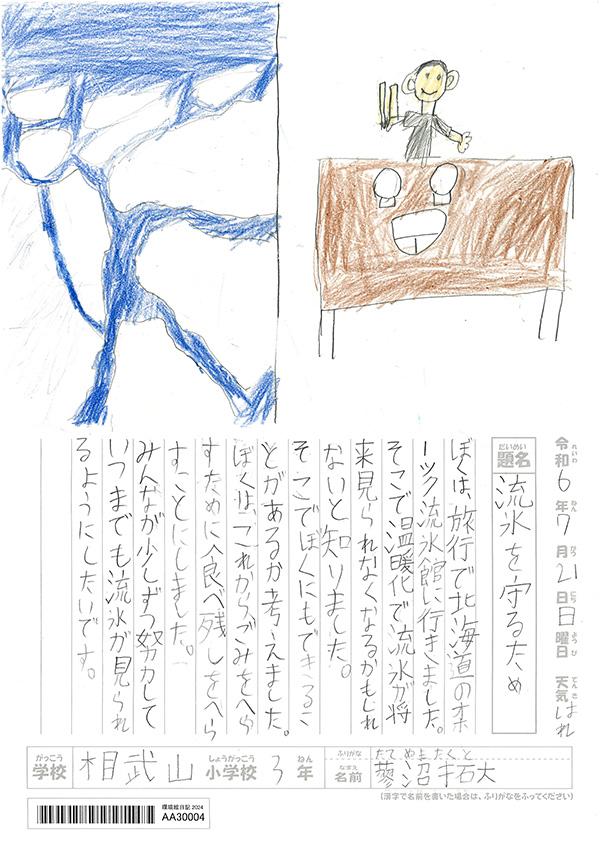 令和6年7月21日日曜日 天気はれ
れいわ ねん がつ にち ようび てんき
だいめい
題名 流氷を守るため
ぼくは、旅行で北海道のオホ
ーツク流氷館に行きました。
そこで温暖化で流氷が将
来見られなくなるかもしれ
ないと知りました。
そこでぼくにもできるこ
とがあるか考えました。
ぼくはこれからごみをへら
すために食べ残しをへら
すことにしました。
みんなが少しずつ努力して
いつまでも流氷が見られ
るようにしたいです。
がっこう しょうがっこう ねん
学校 相武山 小学校 3年
ふりがな たでぬまたくと
なまえ
名前 蓼沼拓大
(漢字で名前を書いた場合は、ふりがなをふってください)
環境絵日記 2024
AA30004